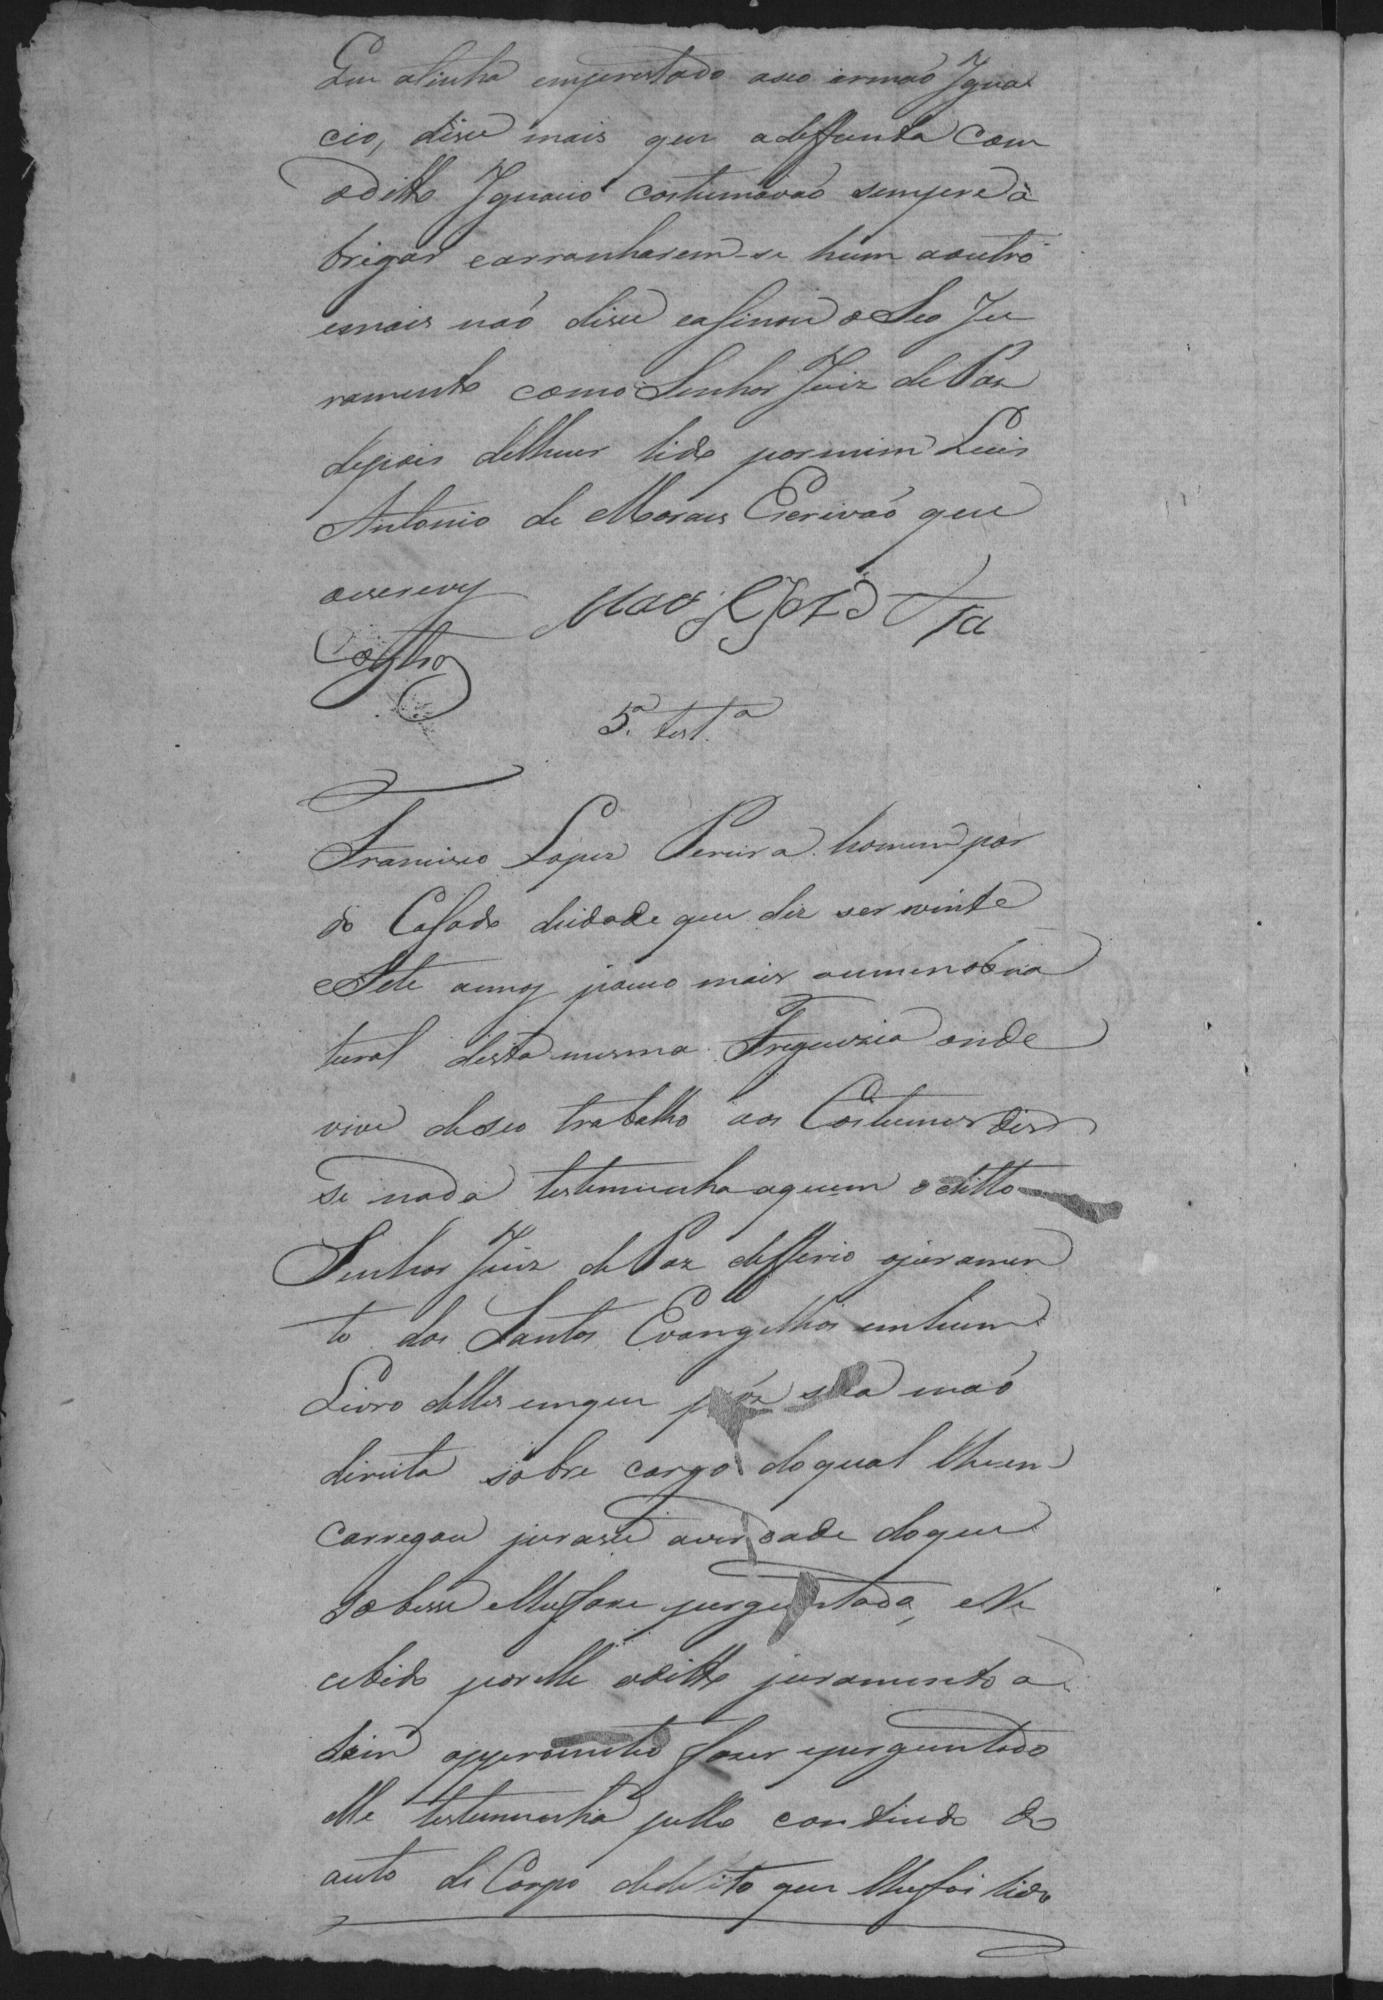 que atinha emprestado aseo irmaó Ignaa
cio, dise mais que adeffunta com
oditto Ignacio costumavaó sempre à
brigar earranharem-se hum aoutro
emais naó dise easinou o Seo Ju
ramento como Senhor Juiz de Paz
depois delheser lido pormim Luis
Antonio de Moraes Escrivaó que
oescrevy
Castro
5.ª test.ª
Francisco Lopes Pereira homem par
do Casado deidade que diz ser vinte
eSete annos pouco mais oumenos na
tural desta mesma Freguezia onde
vive deseo trabalho aos Costumes dis
se nada testemunha aquem o ditto
Senhor Juiz de Paz defferio ojuramen
to dos Santos Evangelhos emhum
Livro delles emque pôz sua maó
direita sobre cargo doqual lheen
carregou jurase averdade doque
Sobesse elhefose perguntado, eRe
cebido porelle oditto juramento a
sim oprometeo fazer eperguntado
elle testemunha pello contiudo do
auto de Corpo dedelito que lhefoi lido